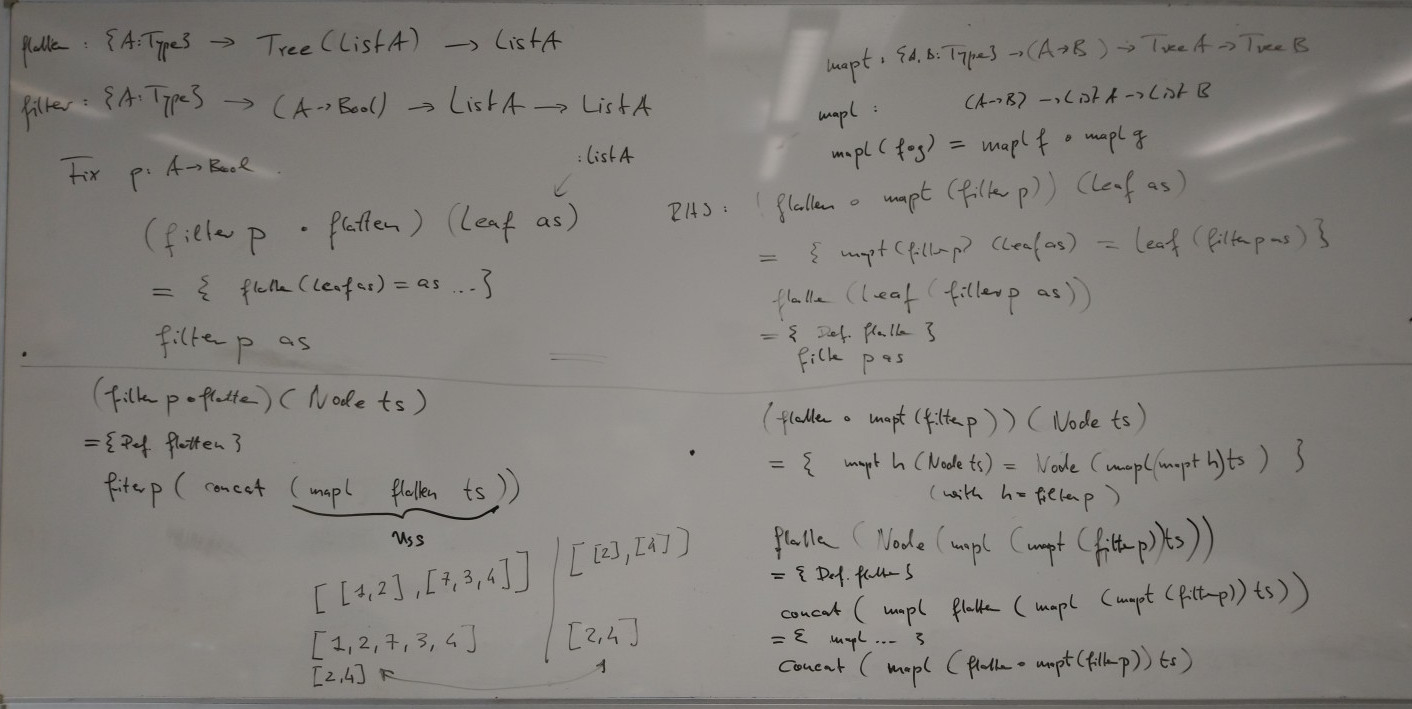 flatten : {A:Type} → Tree (List A) → List A
filter : {A:Type} → (A→Bool) → List A → List A
Fix p: A→Bool.
: List A
(filter p ∘ flatten) (Leaf as)
= { flatten (Leaf as) = as ... }
filter p as
mapt : {A,B:Type} → (A→B) → Tree A → Tree B
mapl : (A→B) → List A → List B
mapl (f∘g) = mapl f ∘ mapl g
RHS : (flatten ∘ mapt (filter p)) (Leaf as)
= { mapt (filter p) (Leaf as) = Leaf (filter p as) }
flatten (Leaf (filter p as))
= { Def. flatten }
filter p as
(filter p ∘ flatten) (Node ts)
= { Def. flatten }
fiter p ( concat (mapl flatten ts))
uss
[ [1,2], [7,3,4] ]
[1,2,7,3,4]
[2,4]
[ [2], [4] ]
[2,4]
(flatten ∘ mapt (filter p)) (Node ts)
= { mapt h (Node ts) = Node (mapl (mapt h) ts ) }
(with h = filter p)
flatten (Node (mapl (mapt (filter p)) ts))
= { Def. flatten }
concat ( mapl flatten ( mapl (mapt (filter p)) ts))
= { mapl ... }
concat ( mapl (flatten ∘ mapt (filter p)) ts)